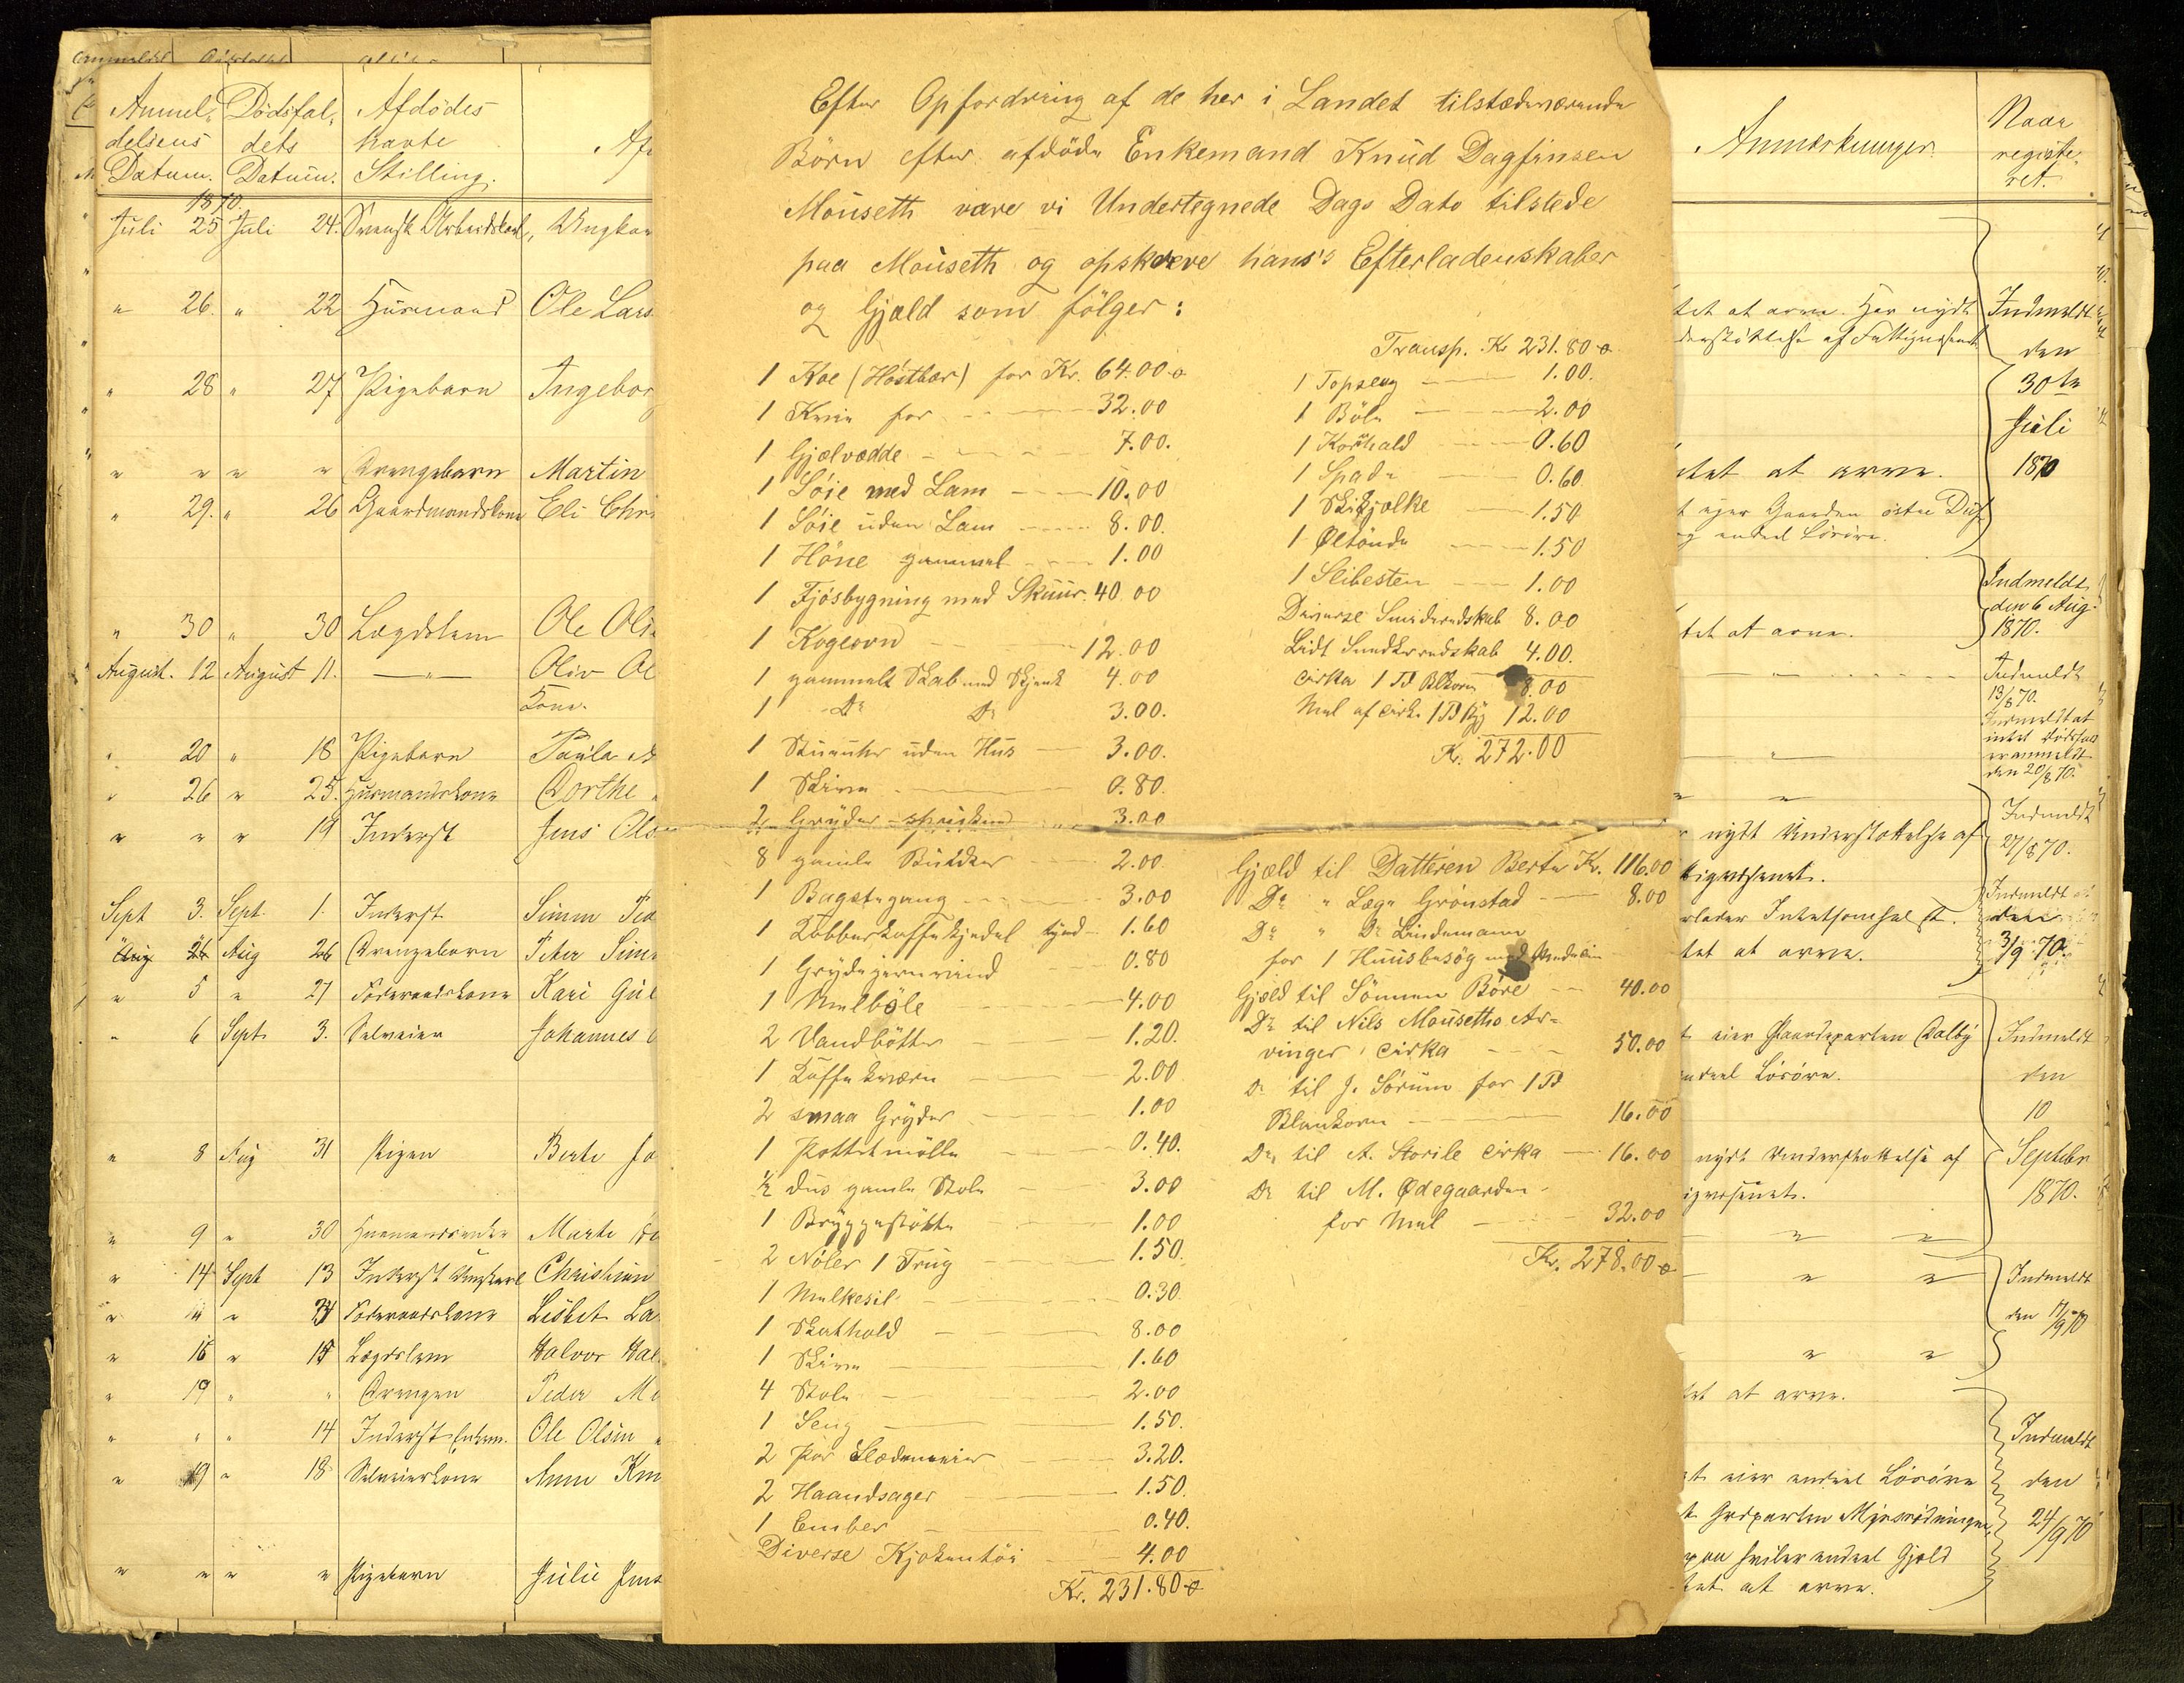 Efter Opfordring af de her i Landet tilstedeværende
Börn efter afdöde Enkemand Knud Dagfinsen
Mouseth vare vi Undertegnede Dags Dato tilstede
paa Mouseth og opskreve hans's Efterladenskaber
og Gjæld som fölger:
1 Koe (Höstbær) for Kr. 64.00 ø
1 Kvie for 32.00
1 Gjælvædde 7.00.
1 Söie med Lam 10.00
1 Söie uden Lam 8.00.
1 Höne gammel 1.00
1 Fjösbygning med Skuur 40.00
1 Kogeovn 12.00
1 gammelt Skab med Skjænk 4.00
1 Do Do 3.00.
1 Stueuhr uden Hus 3.00.
1 Skrin 0.80.
2 Gryder 3.00
8 gamle Bøtter 2.00.
1 Bagstegang 3.00
1 Kobberkaffekjedel tynd 1.60
1 Grydejernrind 0.80
1 Melböle 4.00
2 Vandbötter 1.20.
1 Kaffekværn 2.00
2 smaa Gryder 1.00
1 Pottetmölle 0.40.
½ dus gamle Stole 3.00
1 Bryggestötte 1.00
2 Nöler 1 Trug 1.50.
1 Melkesil 0.30
1 Skathold 8.00
1 Skrin 1.60
4 Stole 2.00
1 Seng 1.50.
2 Par Slædemeier 3.20.
2 Haandsager 1.50.
1 Ember 0.40.
Diverse Kjökentöi 4.00
Kr. 231.80 ø
Transp. Kr 231.80 ø
1 Topseng 1.00.
1 Böle 2.00
1 Kornhald 0.60
1 Spade 0.60
1 Skikjolke 1.50
1 Øltönde 1.50
1 Slibesten 1.00
Diverse Smideredskab 8.00
Lidt Snedkerredskab 4.00.
cirka 1 Td Blkorn 8.00
Mel af cirk. 1 Td Byg 12.00
Kr. 272.00
Gjæld til Datteren Berte Kr. 116.00
Do " Læge Grönstad 8.00
Do " Dr Lindemann
for 1 Huusbesög med Medesin
Gjæld til Sönnen Böre 40.00
Do til Nils Mouseths Ar-
vinger cirka 50.00
Do til J. Sörum for 1 Td
Blankorn 16.00
Do til A. Storile cirka 16.00
Do til M. Ødegaarden
for Mel 32.00
Kr. 278.00 ø
Anmel- Dödsfal- Afdödes
delsens dets havte
Datum. Datum. Stilling.
1870.
Juli 25 Juli 24. Svensk Arbeidskarl, Ungkar
" 26. " 22 Husmand Ole Lars
" 28 " 27 Pigebarn Ingebor
" " " " Drengebarn Martin
" 29. " 26 Gaardmandskone Eli Chr
" 30 " 30 Lægdslem Ole Ols
August. 12 August 11. — " — Oliv Ol
Kone.
" 20 " 18 Pigebarn Paula
" 26 " 25. Husmandskone Dorthe
" " " 19 Inderst Jens Ols
Sept 3. Sept. 1. Inderst Simen Ped
Aug 26 Aug 26 Drengebarn Peter Sime
" 5 " 27 Föderaadskone Kari Gul
" 6 Sept. 3. Selveier Johannes
" 8 Aug 31 Pigen Berte Jo
" 9 " 30 Husmandsenke Marte
" 14 Sept 13 Inderst Ungkarl Christian
" " " Föderaadskone Lisbet La
" 16 " 15 Lægdslem Halvor Hal
" 19 " " Drengen Peder M
" " " 14 Inderst Enkem. Ole Olsen
" 19 " 18 Selveierkone Anne Kn
" " " " Pigebarn Julie Jens
Anmærkninger.
Naar
registe-
ret.
tet at arve. Har nydt
derstöttelse af Fattigvæsenet
Indmeldt
den
30te
Juli
1870
ntet at arve.
t eier Gaarden östre
og endeel Lösöre.
Indmeldt
den 6 Aug.
1870.
tet at arve.
Indmeldt
13/8 70.
Indmeldt at
intet Dödsfald
er anmeldt
den 20/8 70.
nydt Understøttelse af
tigvæsenet.
Indmeldt
27/8 70.
rlader Intetsomhelst.
tet at arve.
Indmeldt
den
3/9 70.
t eier Gaardparten Dalby
endeel Lösöre.
Indmeldt
den
10
Septebr
1870.
nydt Understøttelse af
igvæsenet.
Indmeldt
den 17/9 70
tet at arve.
t eier endeel Lösöre
t Grdparten
paa hviler endeel Gjæld
tet at arve.
Indmeldt
den
24/9 70